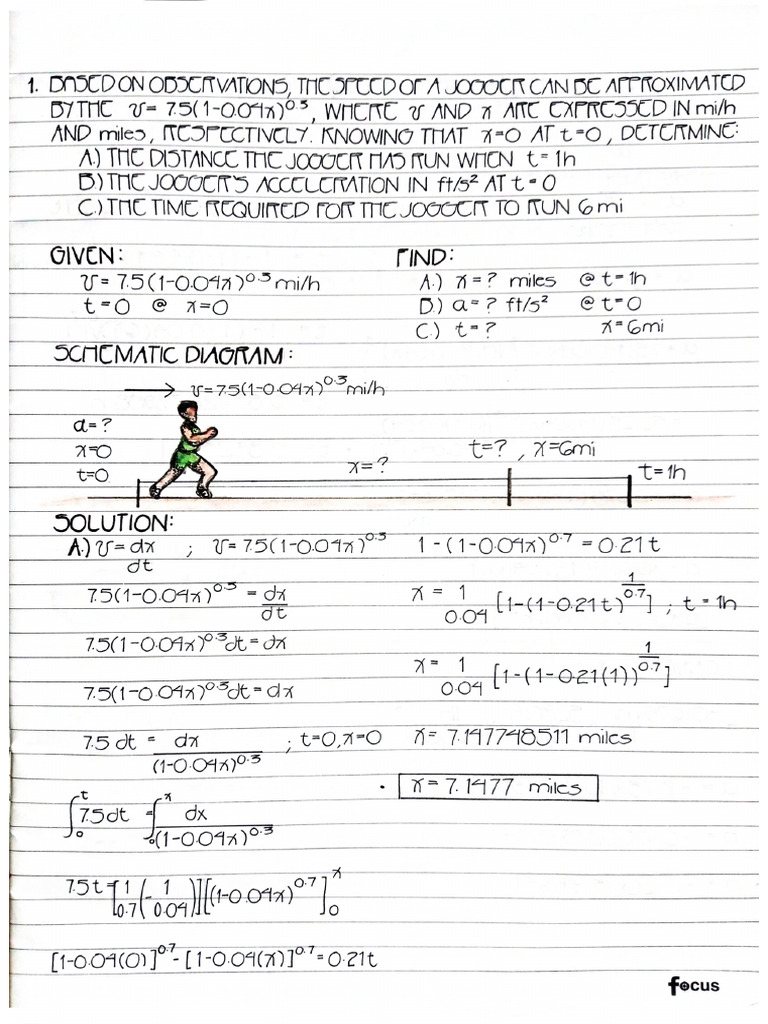 1. BASED ON OBSERVATIONS, THE SPEED OF A JOGGER CAN BE APPROXIMATED
BY THE v = 7.5(1-0.04x)^0.3, WHERE v AND x ARE EXPRESSED IN mi/h
AND miles, RESPECTIVELY. KNOWING THAT x=0 AT t=0, DETERMINE:
A.) THE DISTANCE THE JOGGER HAS RUN WHEN t = 1h
B.) THE JOGGER'S ACCELERATION IN ft/s² AT t = 0
C.) THE TIME REQUIRED FOR THE JOGGER TO RUN 6 mi
GIVEN:
v = 7.5(1-0.04x)^0.3 mi/h
t = 0 @ x=0
FIND:
A.) x = ? miles @ t = 1h
B.) a = ? ft/s² @ t=0
C.) t = ? x=6mi
SCHEMATIC DIAGRAM:
v=7.5(1-0.04x)^0.3 mi/h
a = ?
x=0
t=0
x = ?
t=? , x=6mi
t=1h
SOLUTION:
A.) v = dx/dt ; v = 7.5(1-0.04x)^0.3
7.5(1-0.04x)^0.3 = dx/dt
7.5(1-0.04x)^0.3 dt = dx
7.5(1-0.04x)^0.3 dt = dx
7.5 dt = dx/(1-0.04x)^0.3 ; t=0, x=0
∫₀^t 7.5dt = ∫₀^x dx/(1-0.04x)^0.3
7.5t = [1/0.7 (-1/0.04)][(1-0.04x)^0.7]₀^x
[1-0.04(0)]^0.7 - [1-0.04(x)]^0.7 = 0.21t
1 - (1-0.04x)^0.7 = 0.21t
x = 1/0.04 [1-(1-0.21t)^(1/0.7)] ; t = 1h
x = 1/0.04 [1-(1-0.21(1))^(1/0.7)]
x = 7.147748511 miles
· x = 7.1477 miles
focus